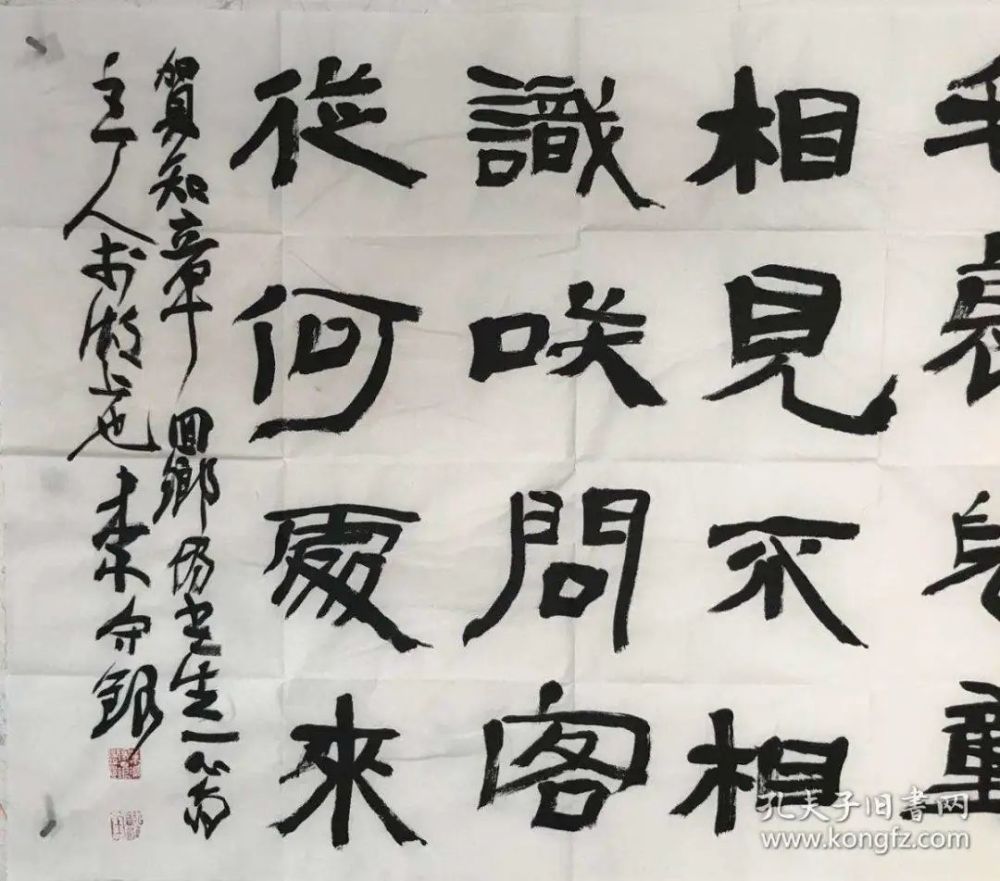 毛衰兒童
相見不相
識咲問客
從何處來
賀知章回鄉偶書生一
主人 上也 守銀
孔夫子旧書网
www.kongfz.com